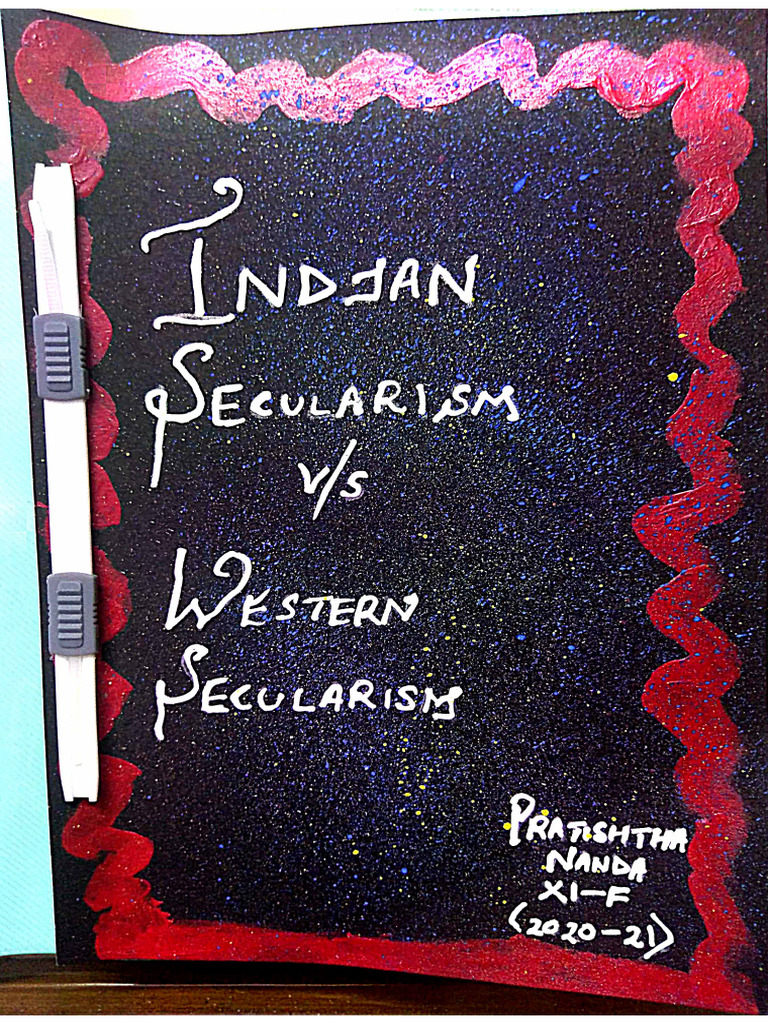 INDIAN
SECULARISM
v/s
WESTERN
SECULARISM
PRATISHTHA
NANDA
XI-F
(2020-21)